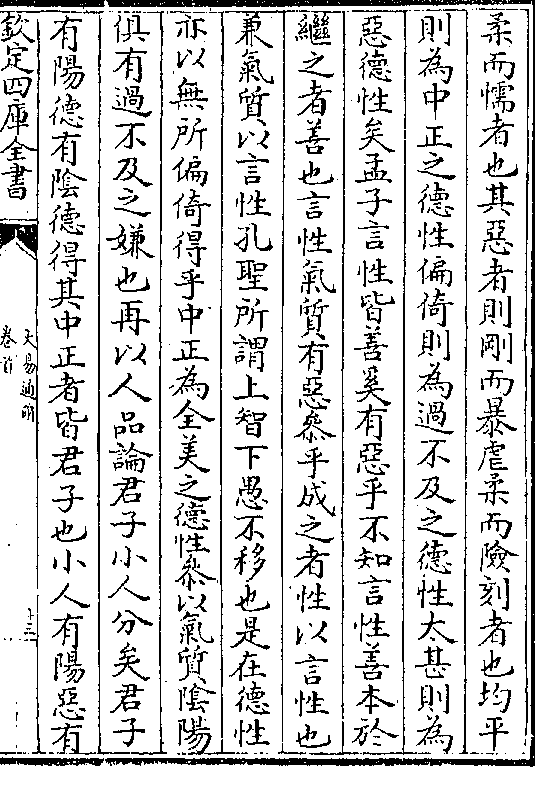 柔而懦者也其惡者則剛而暴虐柔而險刻者也均平
則為中正之德性偏倚則為過不及之德性太甚則為
惡德性矣孟子言性皆善奚有惡乎不知言性善本於
繼之者善也言性氣質有惡叅乎成之者性以言性也
兼氣質以言性孔聖所謂上智下愚不移也是在德性
亦以無所偏倚得乎中正為全美之德性叅以氣質陰陽
俱有過不及之嫌也再以人品論君子小人分矣君子
有陽德有陰德得其中正者皆君子也小人有陽惡有
欽定四庫全書
大易通解
卷首
十三